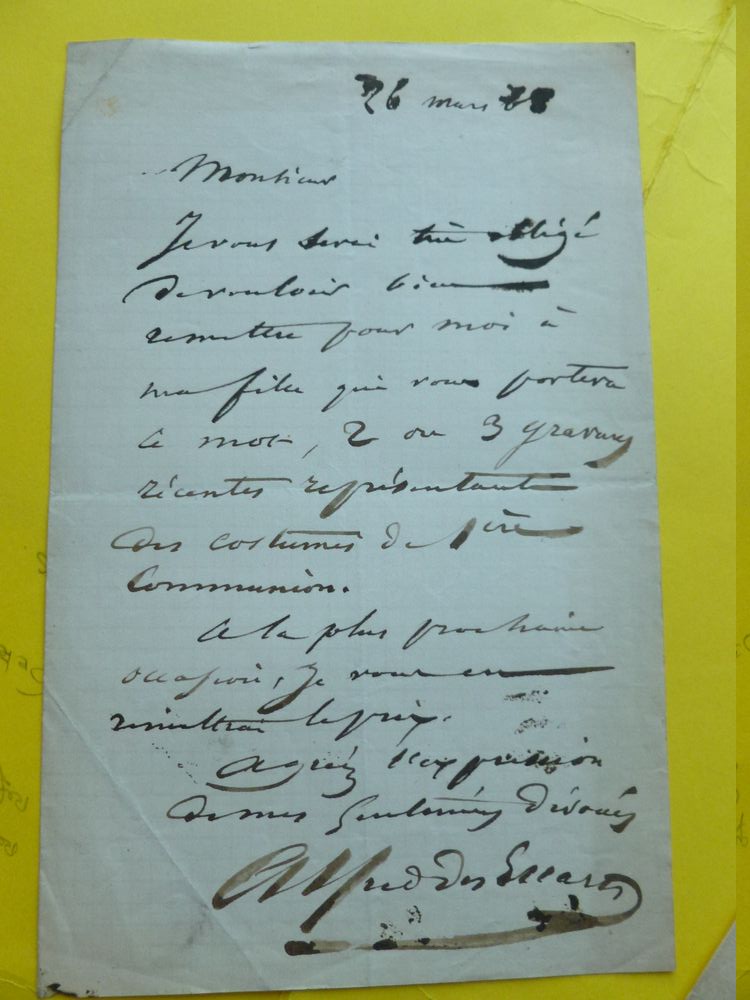 26 mars 88
Monsieur
Je vous serai très obligé
de vouloir bien
remettre pour moi à
ma fille qui vous portera
ce mot, 2 ou 3 gravures
récentes représentant
des costumes de 1ère
Communion.
A la plus prochaine
occasion, je vous en
remettrai le prix.
Agréez l'expression
de mes sentiments dévoués
Alfred des Essarts